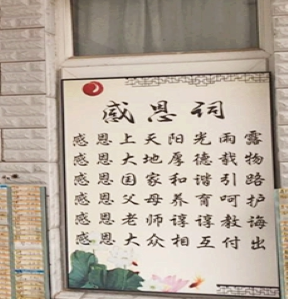 感恩词
感恩上天阳光雨露
感恩大地厚德载物
感恩国家和谐引路
感恩父母养育呵护
感恩老师谆谆教诲
感恩大众相互付出